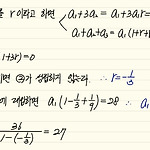 r 이라고 하면 a₁+3a₂ = a₁+3a₁r =
a₁+a₂+a₃ = a₁(1+r+
1+3r)=0
이면 ②가 성립하지 않는다. r=-1/3
에 대입하면 a₁(1-1/3+1/9)=28 ∴ a₁
36/(1-(-1/3)) = 27